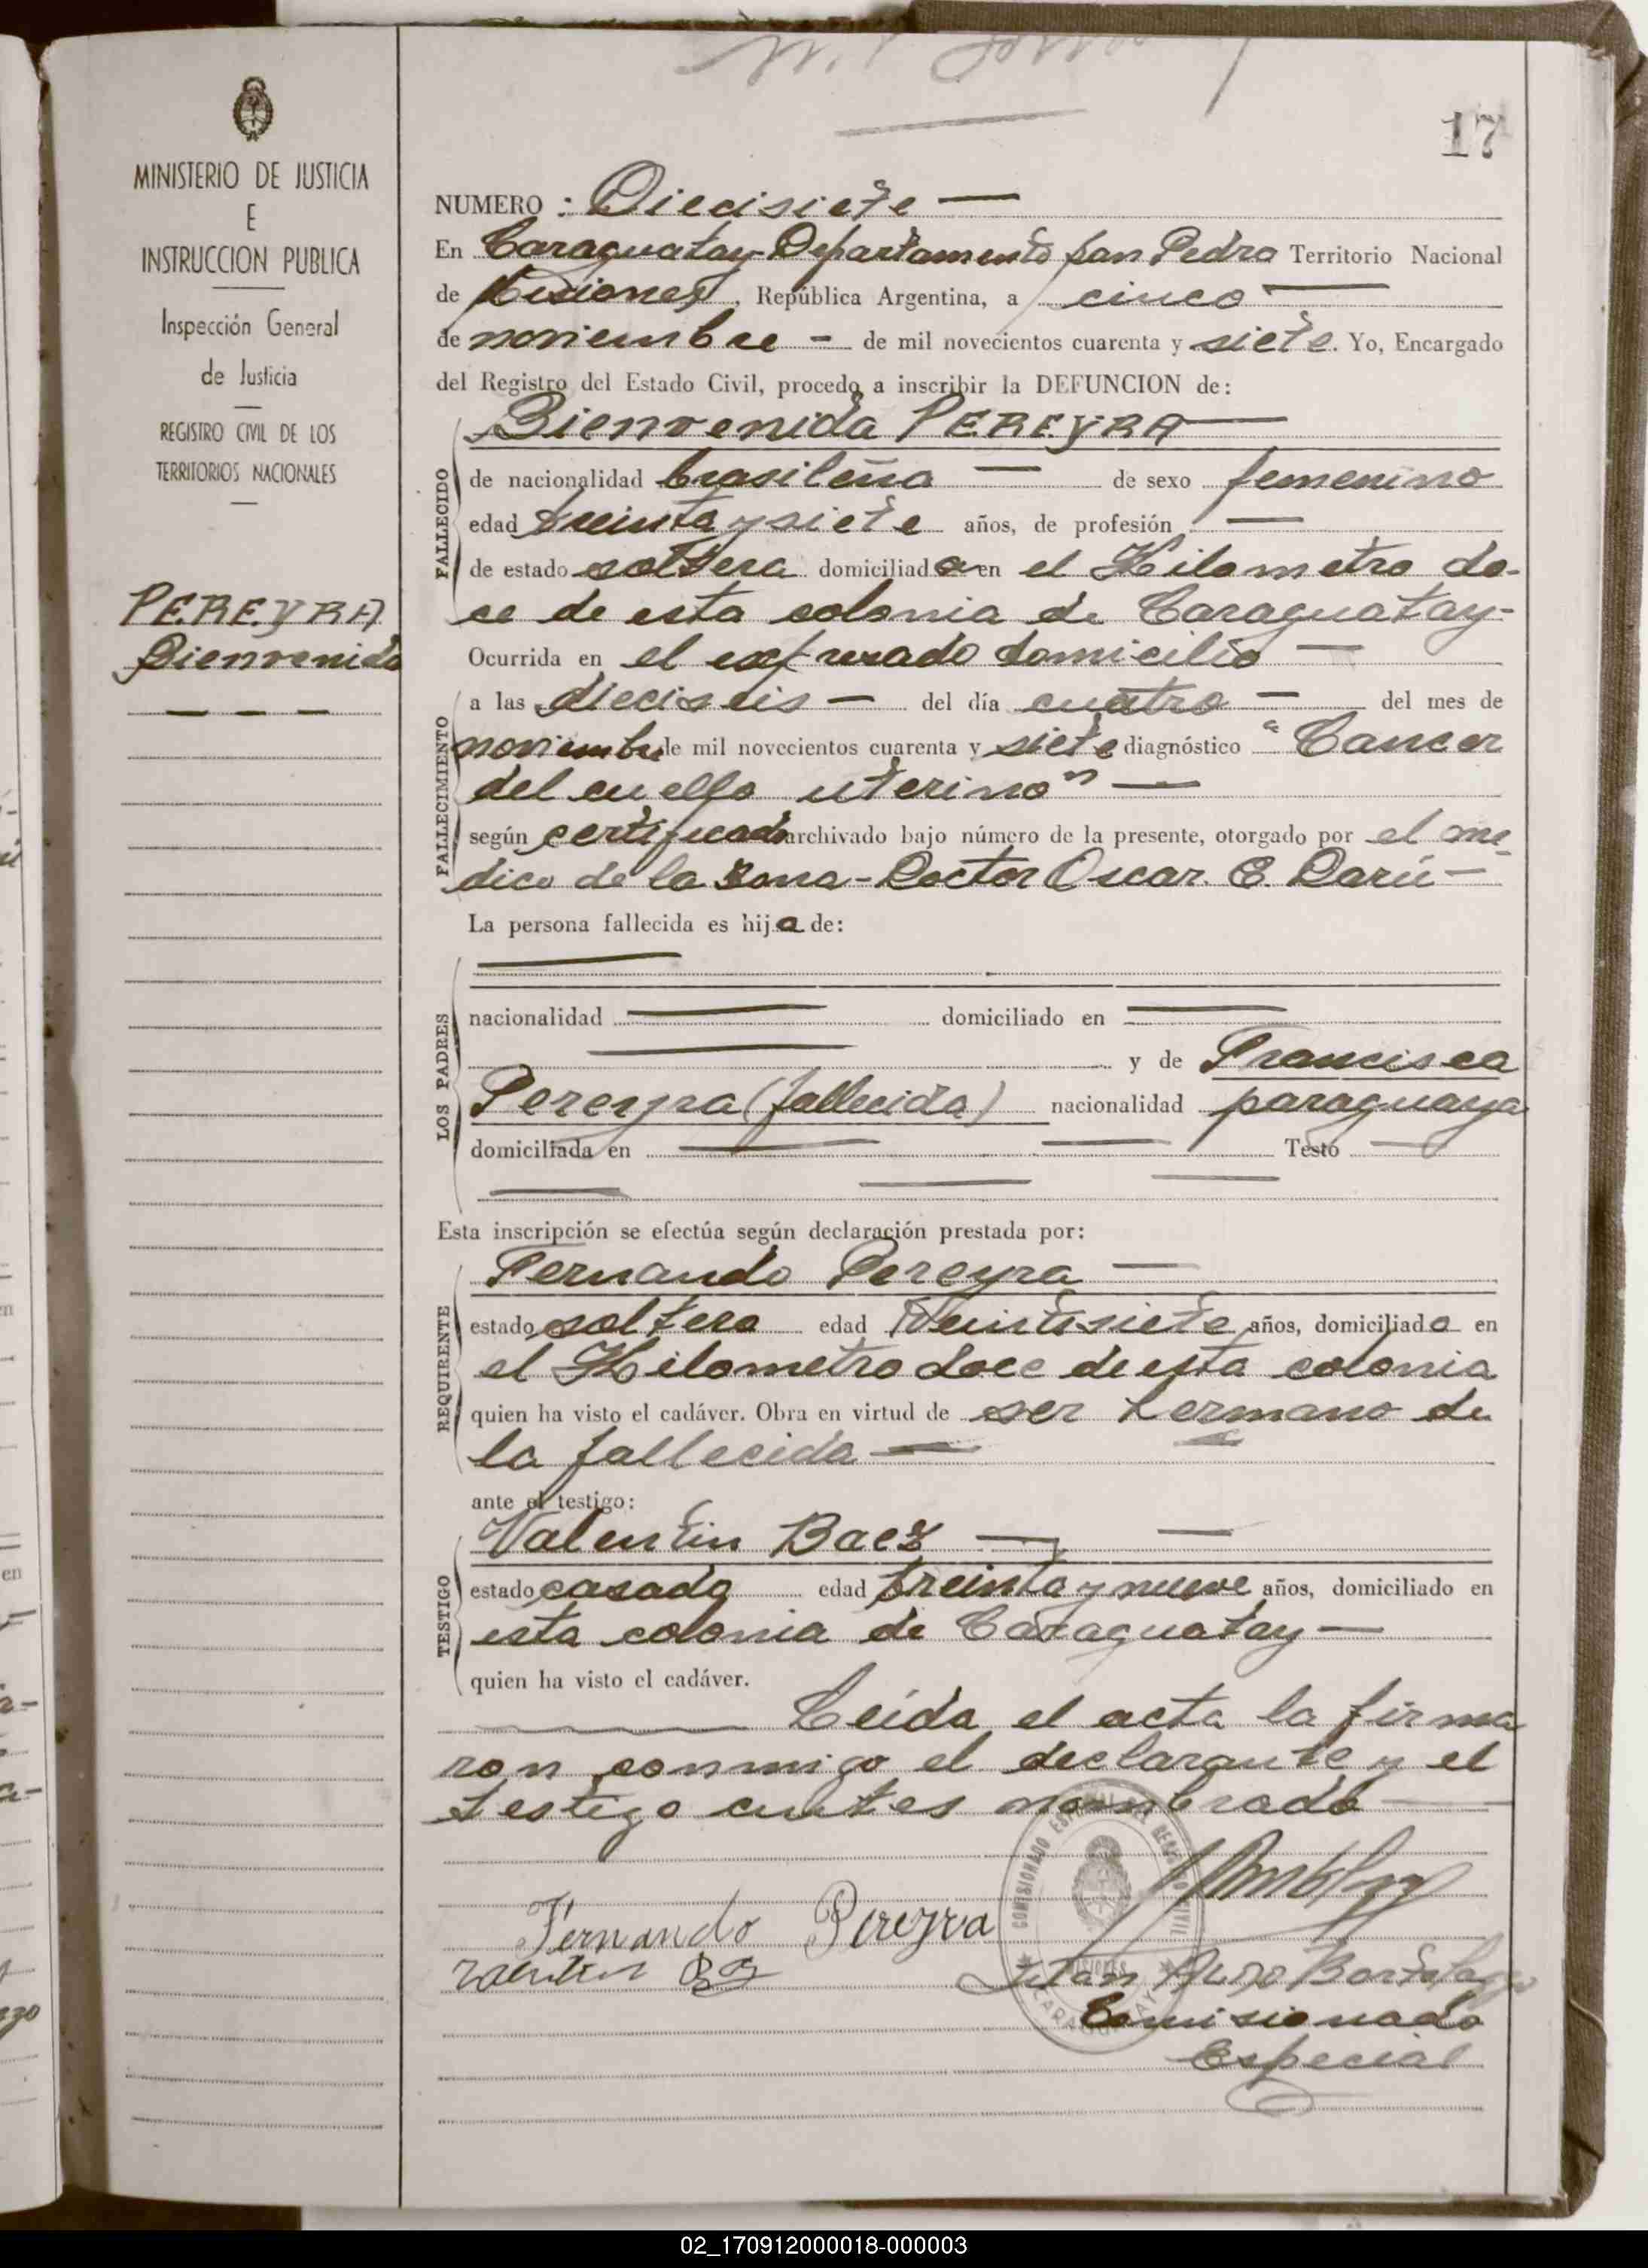 17
MINISTERIO DE JUSTICIA
E
INSTRUCCION PUBLICA
Inspección General
de Justicia
REGISTRO CIVIL DE LOS
TERRITORIOS NACIONALES
PEREYRA
Bienvenida
NUMERO : Diecisiete —
En Caraguatay-Departamento San Pedro Territorio Nacional
de Misiones, República Argentina, a cinco —
de noviembre - de mil novecientos cuarenta y siete. Yo, Encargado
del Registro del Estado Civil, procedo a inscribir la DEFUNCION de:
Bienvenida PEREYRA —
FALLECIDO
de nacionalidad brasileña — de sexo femenino
edad treinta y siete años, de profesión —
de estado soltera domiciliada en el Kilometro do-
ce de esta colonia de Caraguatay-
Ocurrida en el expresado domicilio —
FALLECIMIENTO
a las dieciseis — del día cuatro — del mes de
noviembre de mil novecientos cuarenta y siete diagnóstico "Cancer
del cuello uterino" —
según certificado archivado bajo número de la presente, otorgado por el me-
dico de la zona-Doctor Oscar E. Darú-
La persona fallecida es hija de:
LOS PADRES
nacionalidad — domiciliado en —
— y de Francisca
Pereyra (fallecida) nacionalidad paraguaya
domiciliada en — Testó —
Esta inscripción se efectúa según declaración prestada por:
Fernando Pereyra —
REQUIRENTE
estado soltero edad Veintisiete años, domiciliado en
el Kilometro doce de esta colonia
quien ha visto el cadáver. Obra en virtud de ser hermano de
la fallecida —
ante el testigo:
Valentin Baez —
TESTIGO
estado casado edad treinta y nueve años, domiciliado en
esta colonia de Caraguatay —
quien ha visto el cadáver.
Leída el acta la firma
ron conmigo el declarante y el
testigo antes nombrado —
Fernando Pereyra
Comisionado
Especial
02_170912000018-000003